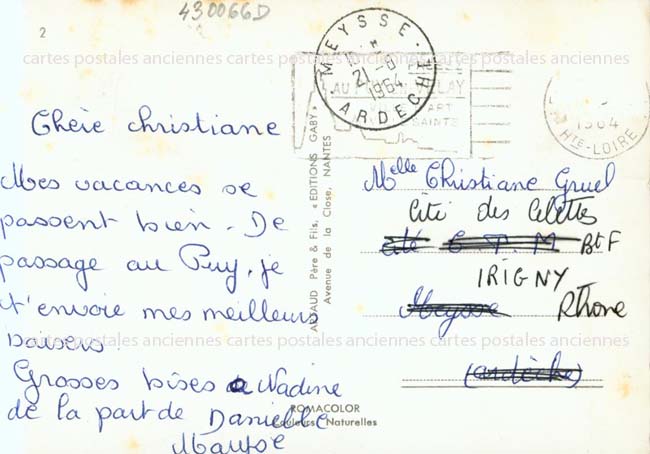 430066D
2
cartes postales anciennes cartes postales anciennes cartes postales anciennes
MEYSSE
21-8
1964
ARDECHE
1964
HTE-LOIRE
Chère Christiane
Mes vacances se
passent bien. De
passage au Puy, je
t'envoie mes meilleurs
baisers.
Grosses bises à Nadine
de la part de Danielle
ARNAUD Père & Fils, «EDITIONS GABY»
Avenue de la Close, NANTES
Melle Christiane Gruel
Cité des Celettes
cité C.T.M Bt F
IRIGNY
Meysse Rhone
(ardèche)
cartes postales anciennes cartes postales anciennes cartes postales anciennes
ROMACOLOR
Couleurs Naturelles